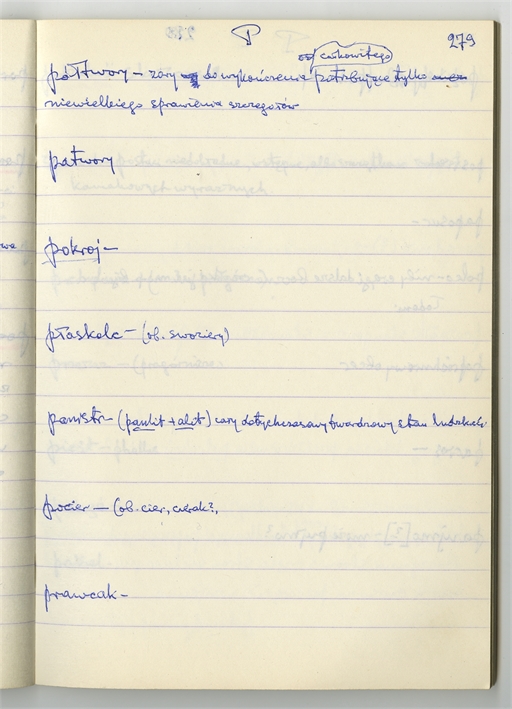 P
279
całkowitego
półtwory – zary do wykończenia potrzebujące tylko
niewielkiego sprawienia szczegółów
patwory
pokroj –
płaskelc – (ob. sworzery)
panistr – (panlit + alit) cały dotychczasowy twardzowy stan ludzkości
pocier – (ob. cier, cierak?,
prawcak –